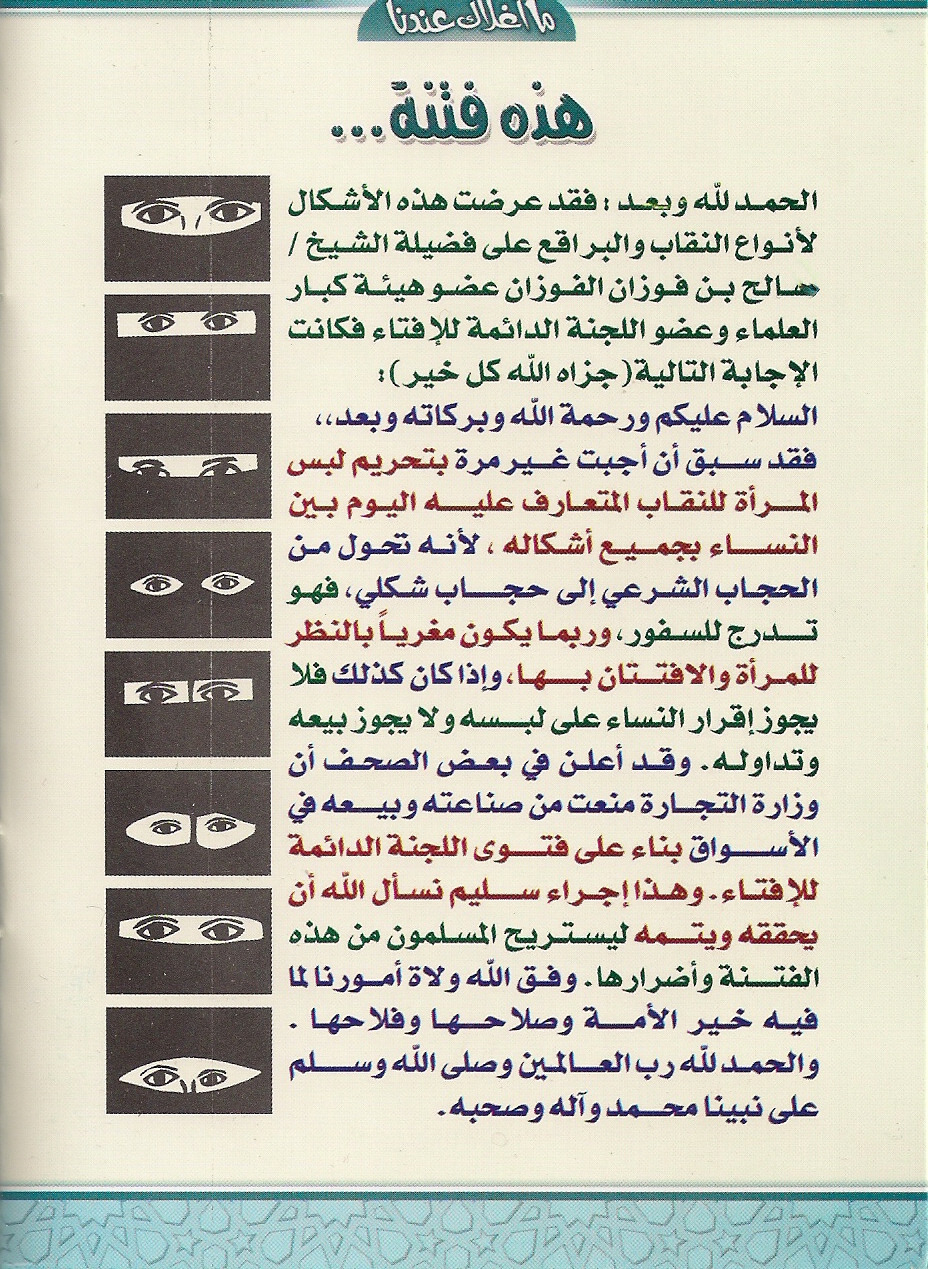 ما أغلاك عندنا
هذه فتنة...
الحمد لله وبعد : فقد عرضت هذه الأشكال
لأنواع النقاب والبراقع على فضيلة الشيخ /
صالح بن فوزان الفوزان عضو هيئة كبار
العلماء وعضو اللجنة الدائمة للإفتاء فكانت
الإجابة التالية(جزاه الله كل خير):
السلام عليكم ورحمة الله وبركاته وبعد،،
فقد سبق أن أجبت غير مرة بتحريم لبس
المرأة للنقاب المتعارف عليه اليوم بين
النساء بجميع أشكاله ، لأنه تحول من
الحجاب الشرعي إلى حجاب شكلي، فهو
تدرج للسفور، وربما يكون مغرياً بالنظر
للمرأة والافتتان بها، وإذا كان كذلك فلا
يجوز إقرار النساء على لبسه ولا يجوز بيعه
وتداوله. وقد أعلن في بعض الصحف أن
وزارة التجارة منعت من صناعته وبيعه في
الأسواق بناء على فتوى اللجنة الدائمة
للإفتاء. وهذا إجراء سليم نسأل الله أن
يحققه ويتمه ليستريح المسلمون من هذه
الفتنة وأضرارها. وفق الله ولاة أمورنا لما
فيه خير الأمة وصلاحها وفلاحها .
والحمد لله رب العالمين وصلى الله وسلم
على نبينا محمد وآله وصحبه.